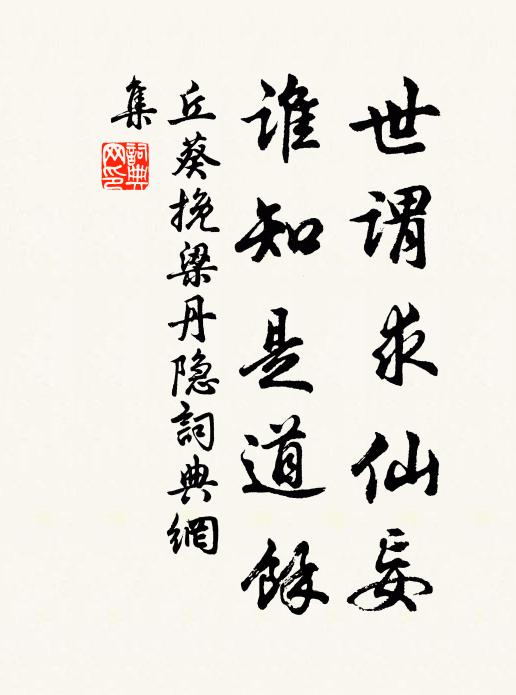 世谓求仙妄
谁知是道馀
丘葵挽梁丹隐詞典網
集
詞典
网印